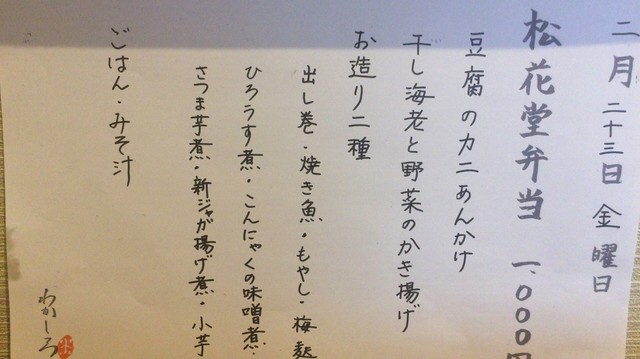 二月二十三日 金曜日
松花堂弁当 一、〇〇〇円
豆腐のカニあんかけ
干し海老と野菜のかき揚げ
お造り二種
出し巻・焼き魚・もやし・梅麩
ひろうす煮・こんにゃくの味噌煮・
さつま芋煮・新ジャガ揚げ煮・小芋
ごはん・みそ汁
わかしろ